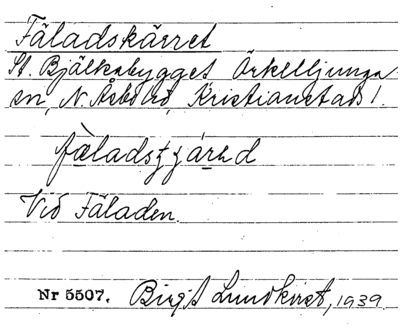 Fäladskärret
St. Bjälkabygget Örkelljunga
sn, N. Åsbo hd, Kristianstads l.
Vid Fäladen.
Nr 5507. Birgit Lundkvist, 1939.